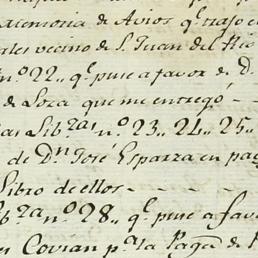 Memoria de Avios q.e trajo e
ales vecino de S. Juan del Rio
n.o 22,, q.e puse a favor de D.
de Loza que me entregó - -
as Lib.zas n.o 23.. 24.. 25..
de D.n José Esparza en pag
Libro de ellos - - - -
b.za n.o 28,, q.e puse a favo
Covian p.r la Paga de